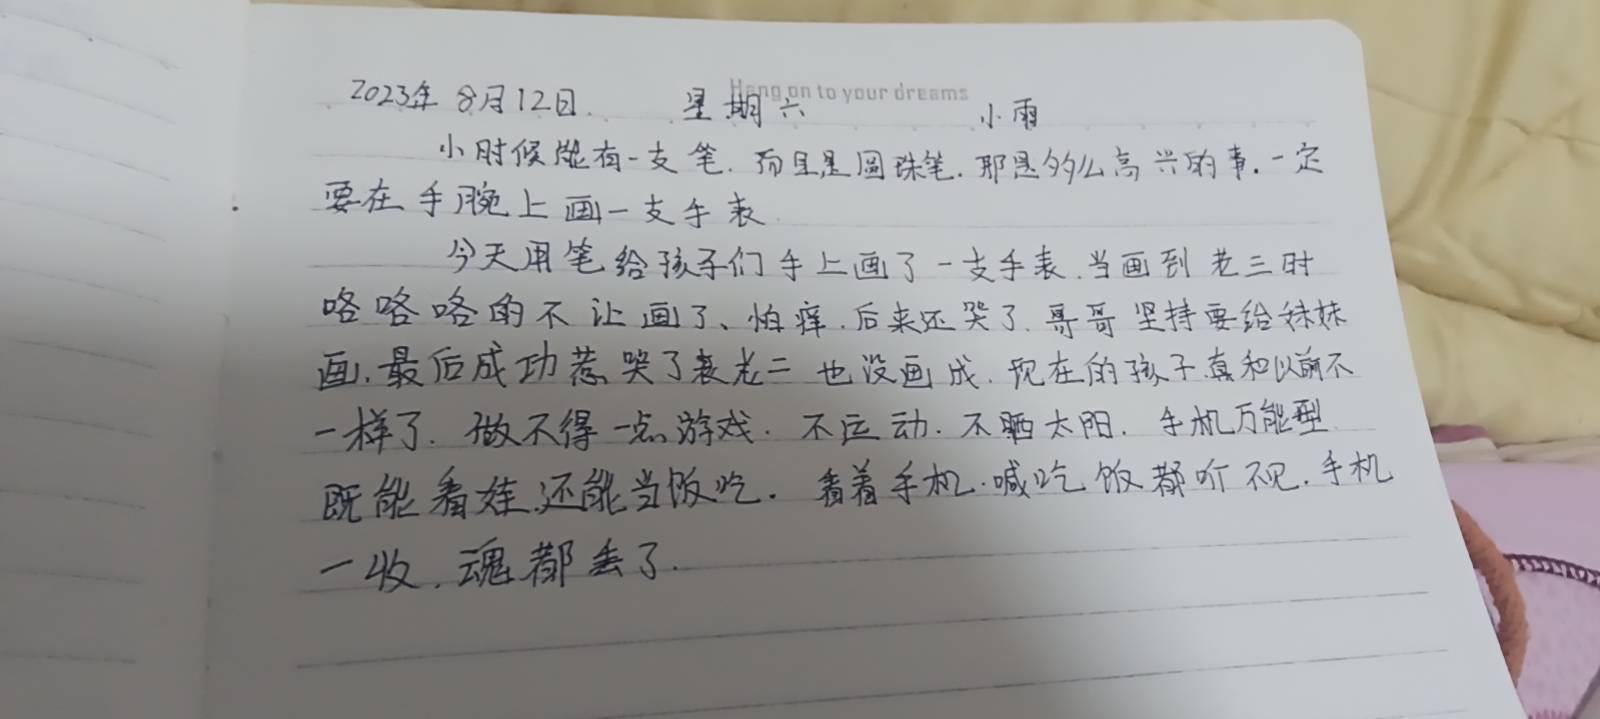 Hang on to your dreams
2023年8月12日. 星期六 小雨
小时候能有一支笔.而且是圆珠笔.那是多么高兴的事.一定
要在手腕上画一支手表.
今天用笔给孩子们手上画了一支手表.当画到老三时
咯咯咯的不让画了、怕痒.后来还哭了.哥哥坚持要给妹妹
画.最后成功惹哭了老二也没画成.现在的孩子真和以前不
一样了.做不得一点游戏.不运动.不晒太阳.手机万能型
既能看娃.还能当饭吃.看着手机.喊吃饭都听不见.手机
一收.魂都丢了.